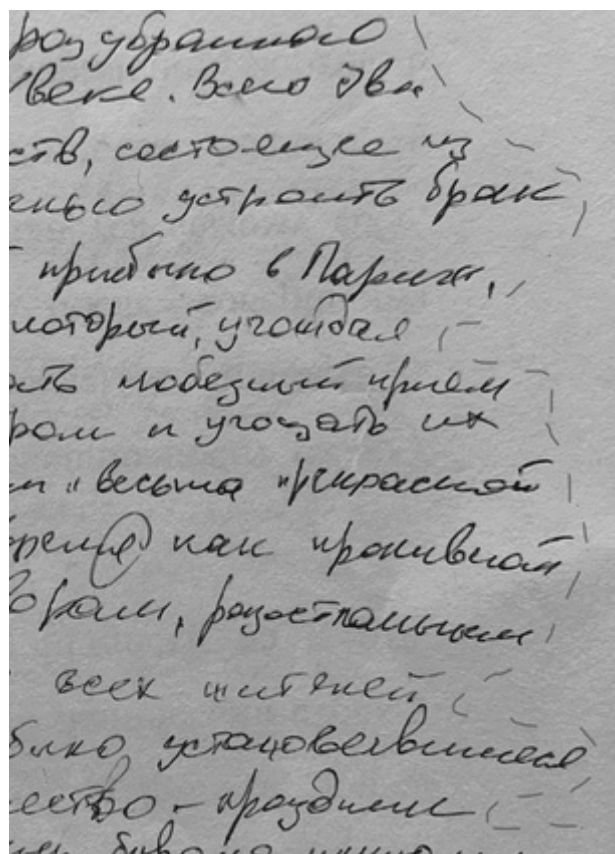 разубранного
веке. Всего два
ств, состоящее из
енью устроить брак
прибыло в Париж,
который, угождая
ать любезный приём
ром и угощать их
и "весьма прекрасной
время как проливной
ворам, разостланным
всех жителей
было установившееся
ество - праздник